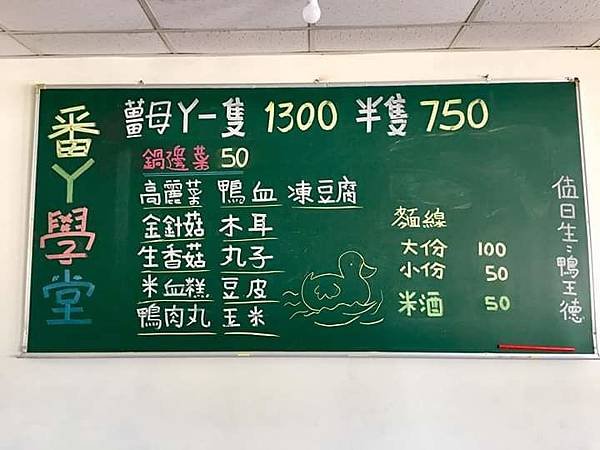 番ㄚ學堂
薑母ㄚ一隻 1300 半隻 750
鍋邊菜 50
高麗菜 鴨血 凍豆腐
金針菇 木耳
生香菇 丸子
米血糕 豆皮
鴨肉丸 玉米
麵線
大份 100
小份 50
米酒 50
值日生:鴨王德